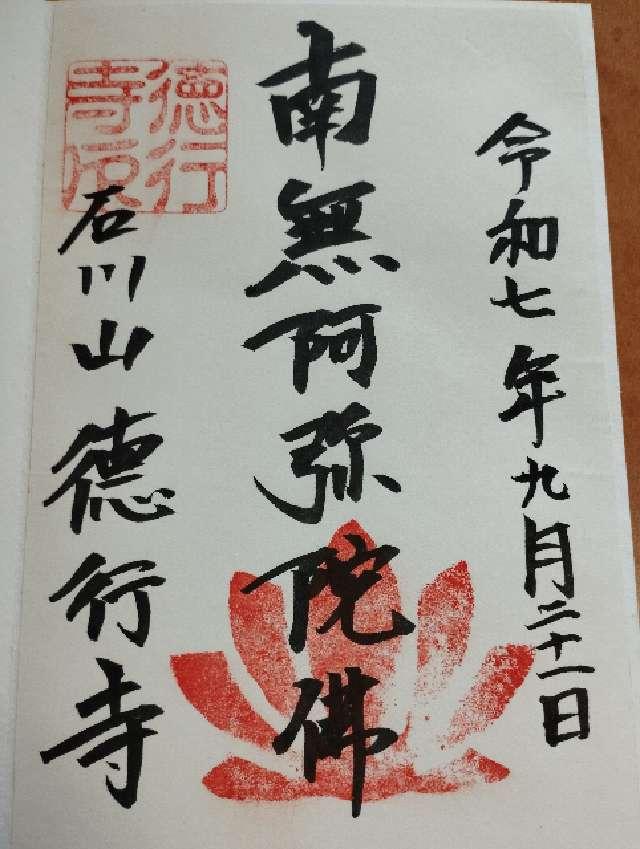 令和七年九月二十一日
南無阿弥陀佛
德行寺印
石川山德行寺